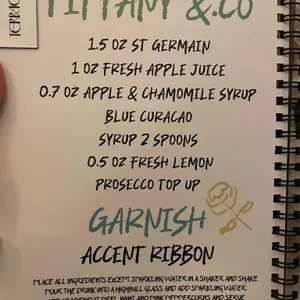 TERRAC
TIFFANY & CO
1.5 OZ ST GERMAIN
1 OZ FRESH APPLE JUICE
0.7 OZ APPLE & CHAMOMILE SYRUP
BLUE CURACAO
SYRUP 2 SPOONS
0.5 OZ FRESH LEMON
PROSECCO TOP UP
GARNISH
ACCENT RIBBON
PLACE ALL INGREDIENTS EXCEPT SPARKLING WATER IN A SHAKER AND SHAKE
POUR THE DRINK INTO A HIGHBALL GLASS AND ADD SPARKLING WATER
PEEL, MINT AND PINK PEPPERCORNS AND SERVE